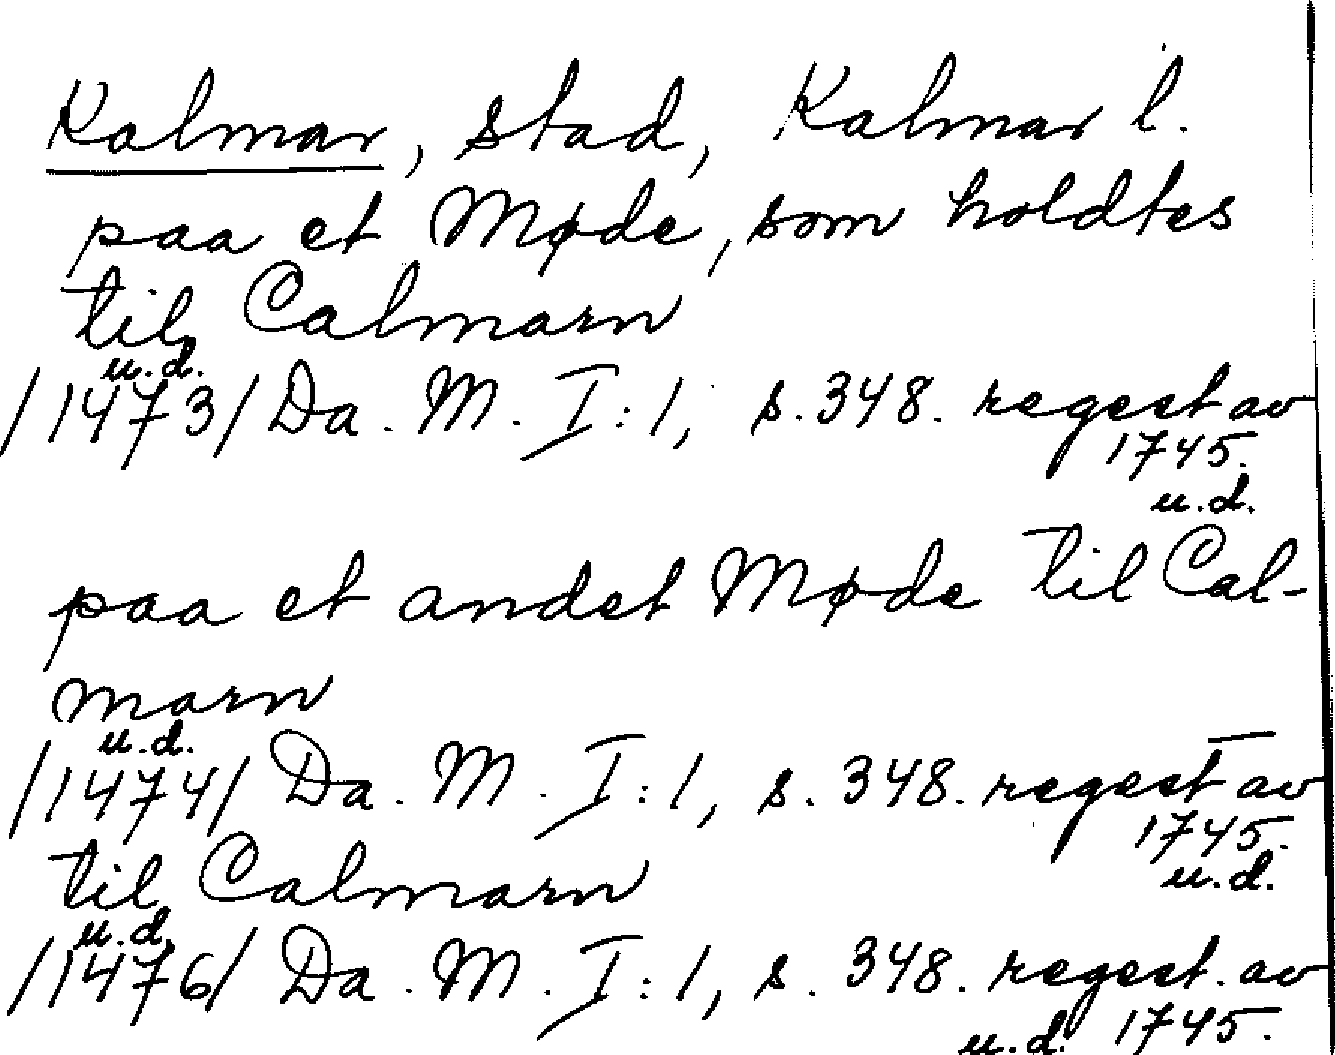 Kalmar, stad, Kalmar l.
paa et Møde, som holdtes
til Calmarn
u.d.
/1473/ Da. M. I:1, s. 348. regest av
1745.
u.d.
paa et andet Møde til Cal-
marn
u.d.
/1474/ Da. M. I:1, s. 348. regest av
1745.
u.d.
til Calmarn
u.d.
/1476/ Da. M. I:1, s. 348. regest. av
u.d. 1745.